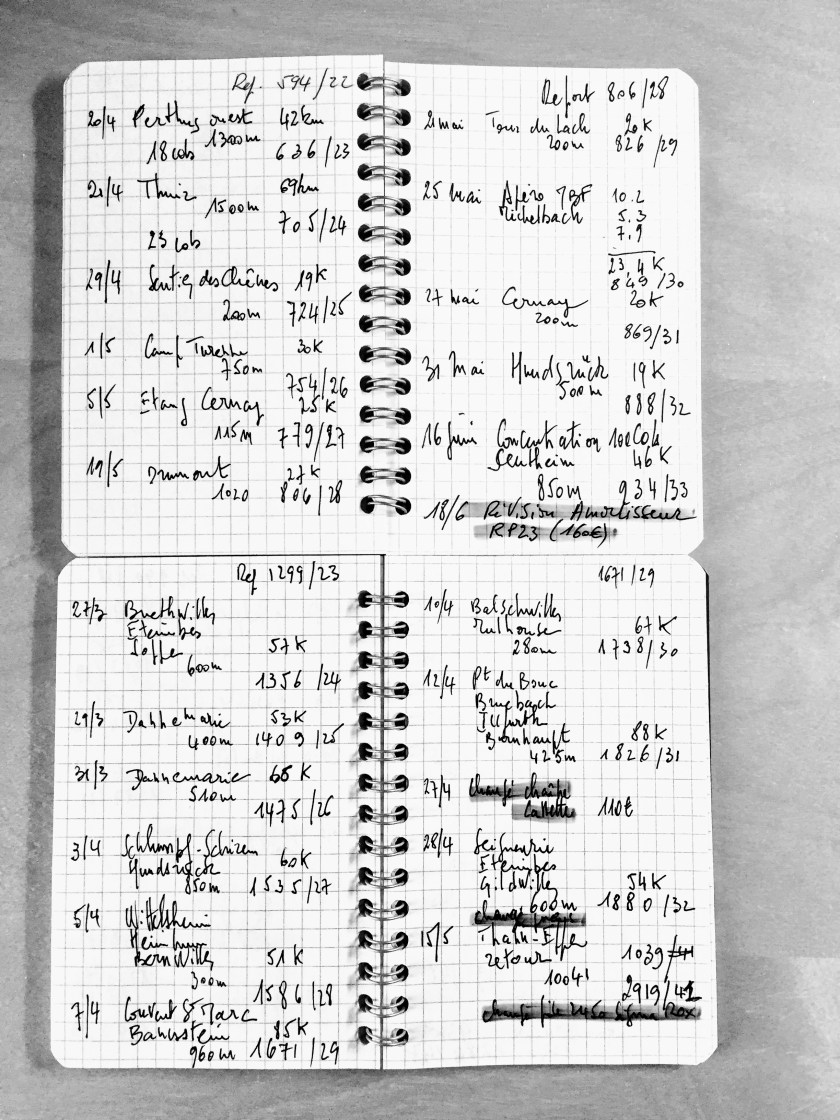 Rep. 594/22
20/4 Perthus ouest 42km
1300m
18 cols 636/23
21/4 Thuir 69km
1500m 705/24
23 cols
29/4 Sentier des Chênes 19K
200m 724/25
1/5 Camp Turenne 30K
750m
754/26
5/5 Etang Cernay 25K
115m 779/27
19/5 Drumont 27K
1020 806/28
Report 806/28
21 mai Tour du Lach 20K
200m 826/29
25 mai Apéro 7BF 10.2
Michelbach 5.3
7.9
23,4K
849/30
27 mai Cernay 20K
200m
869/31
31 Mai Hundsrück 19K
500m
888/32
16 Juin Concentration 100Cols
Sentheim 46K
850m 934/33
18/6 Révision Amortisseur
RP23 (160€)
Rep 1299/23
27/3 Buethwiller
Eteimbes
57K
600m
1356/24
29/3 Dannemarie 53K
400m 1409/25
31/3 Dannemarie 66K
510m
1475/26
3/4 Schlumpf-Schirm
Hundsrück 60K
850m 1535/27
5/4 Wittelsheim
Heimburg
Bernwiller 51K
300m
1586/28
7/4 Couvent St Marc
Bannstein 85K
960m 1671/29
1671/29
10/4 Balschwiller
Mulhouse 67K
280m 1738/30
12/4 Pt du Bouc
Bruebach
Illfurth
Burnhaupt 88K
425m 1826/31
27/4 Changé chaîne
Cassette 110€
28/4 Seigneurie
Eteimbes
Gildwiller 54K
600m 1880/32
changé
15/5 Thann-
retour 1039/41
10041
2919/41
changé pile 2450 Sigma Rox